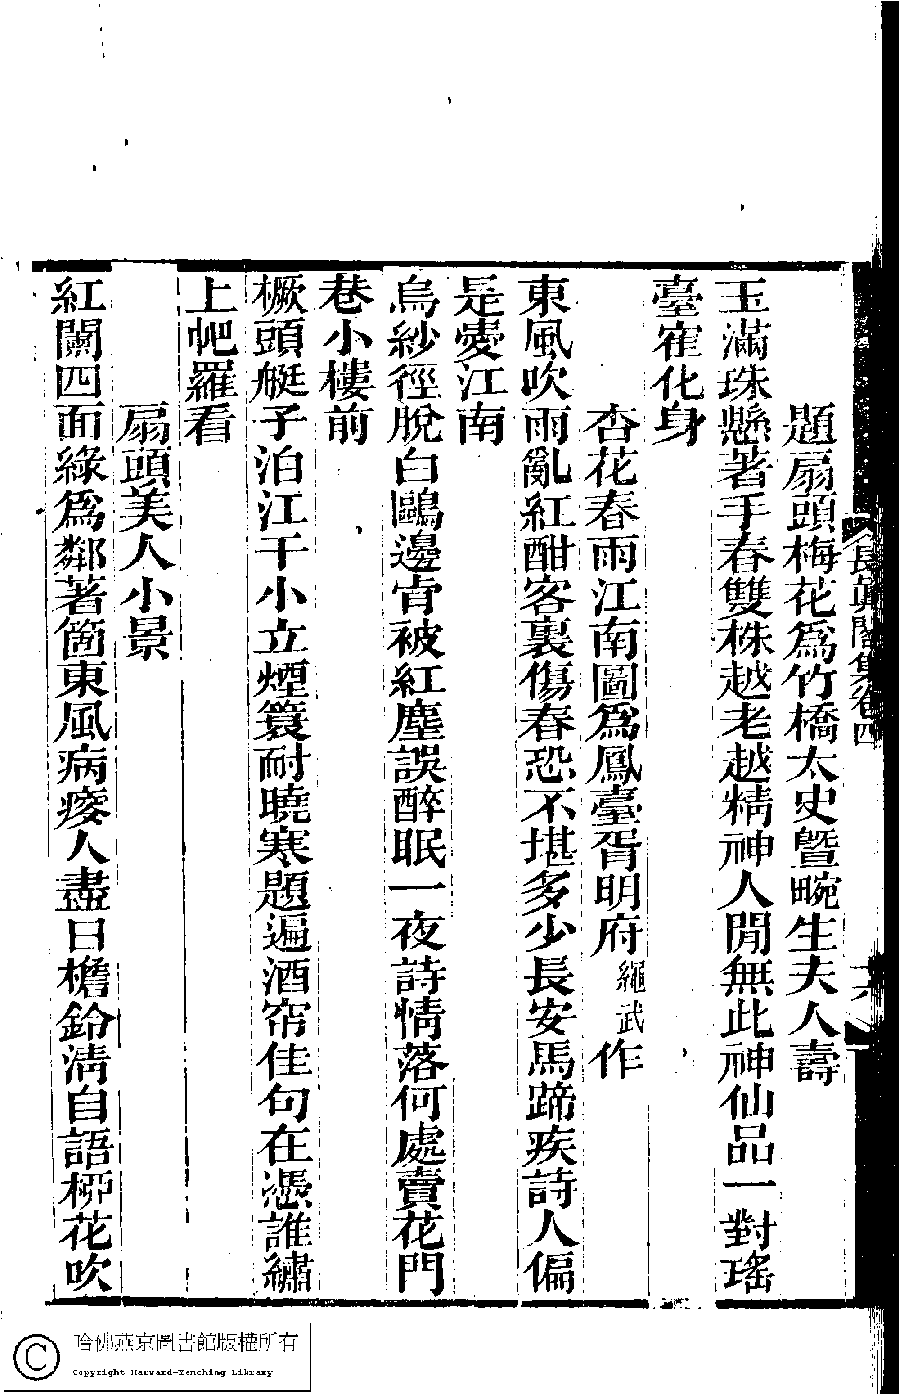 長眞閣集卷四
題扇頭梅花爲竹橋太史曁畹生夫人壽
玉滿珠懸著手春雙株越老越精神人閒無此神仙品一對瑤
臺寉化身
杏花春雨江南圖爲鳳臺胥明府繩武作
東風吹雨亂紅酣客裏傷春恐不堪多少長安馬蹄疾詩人偏
是愛江南
烏紗徑脫白鷗邊肯被紅塵誤醉眠一夜詩情落何處賣花門
巷小樓前
橛頭艇子泊江干小立煙簑耐曉寒題遍酒帘佳句在憑誰繡
上帊羅看
扇頭美人小景
紅闌四面綠爲鄰著箇東風病瘘人盡日檐鈴淸自語桺花吹
哈佛燕京圖書館版權所有
Copyright Harvard-Yenching Library